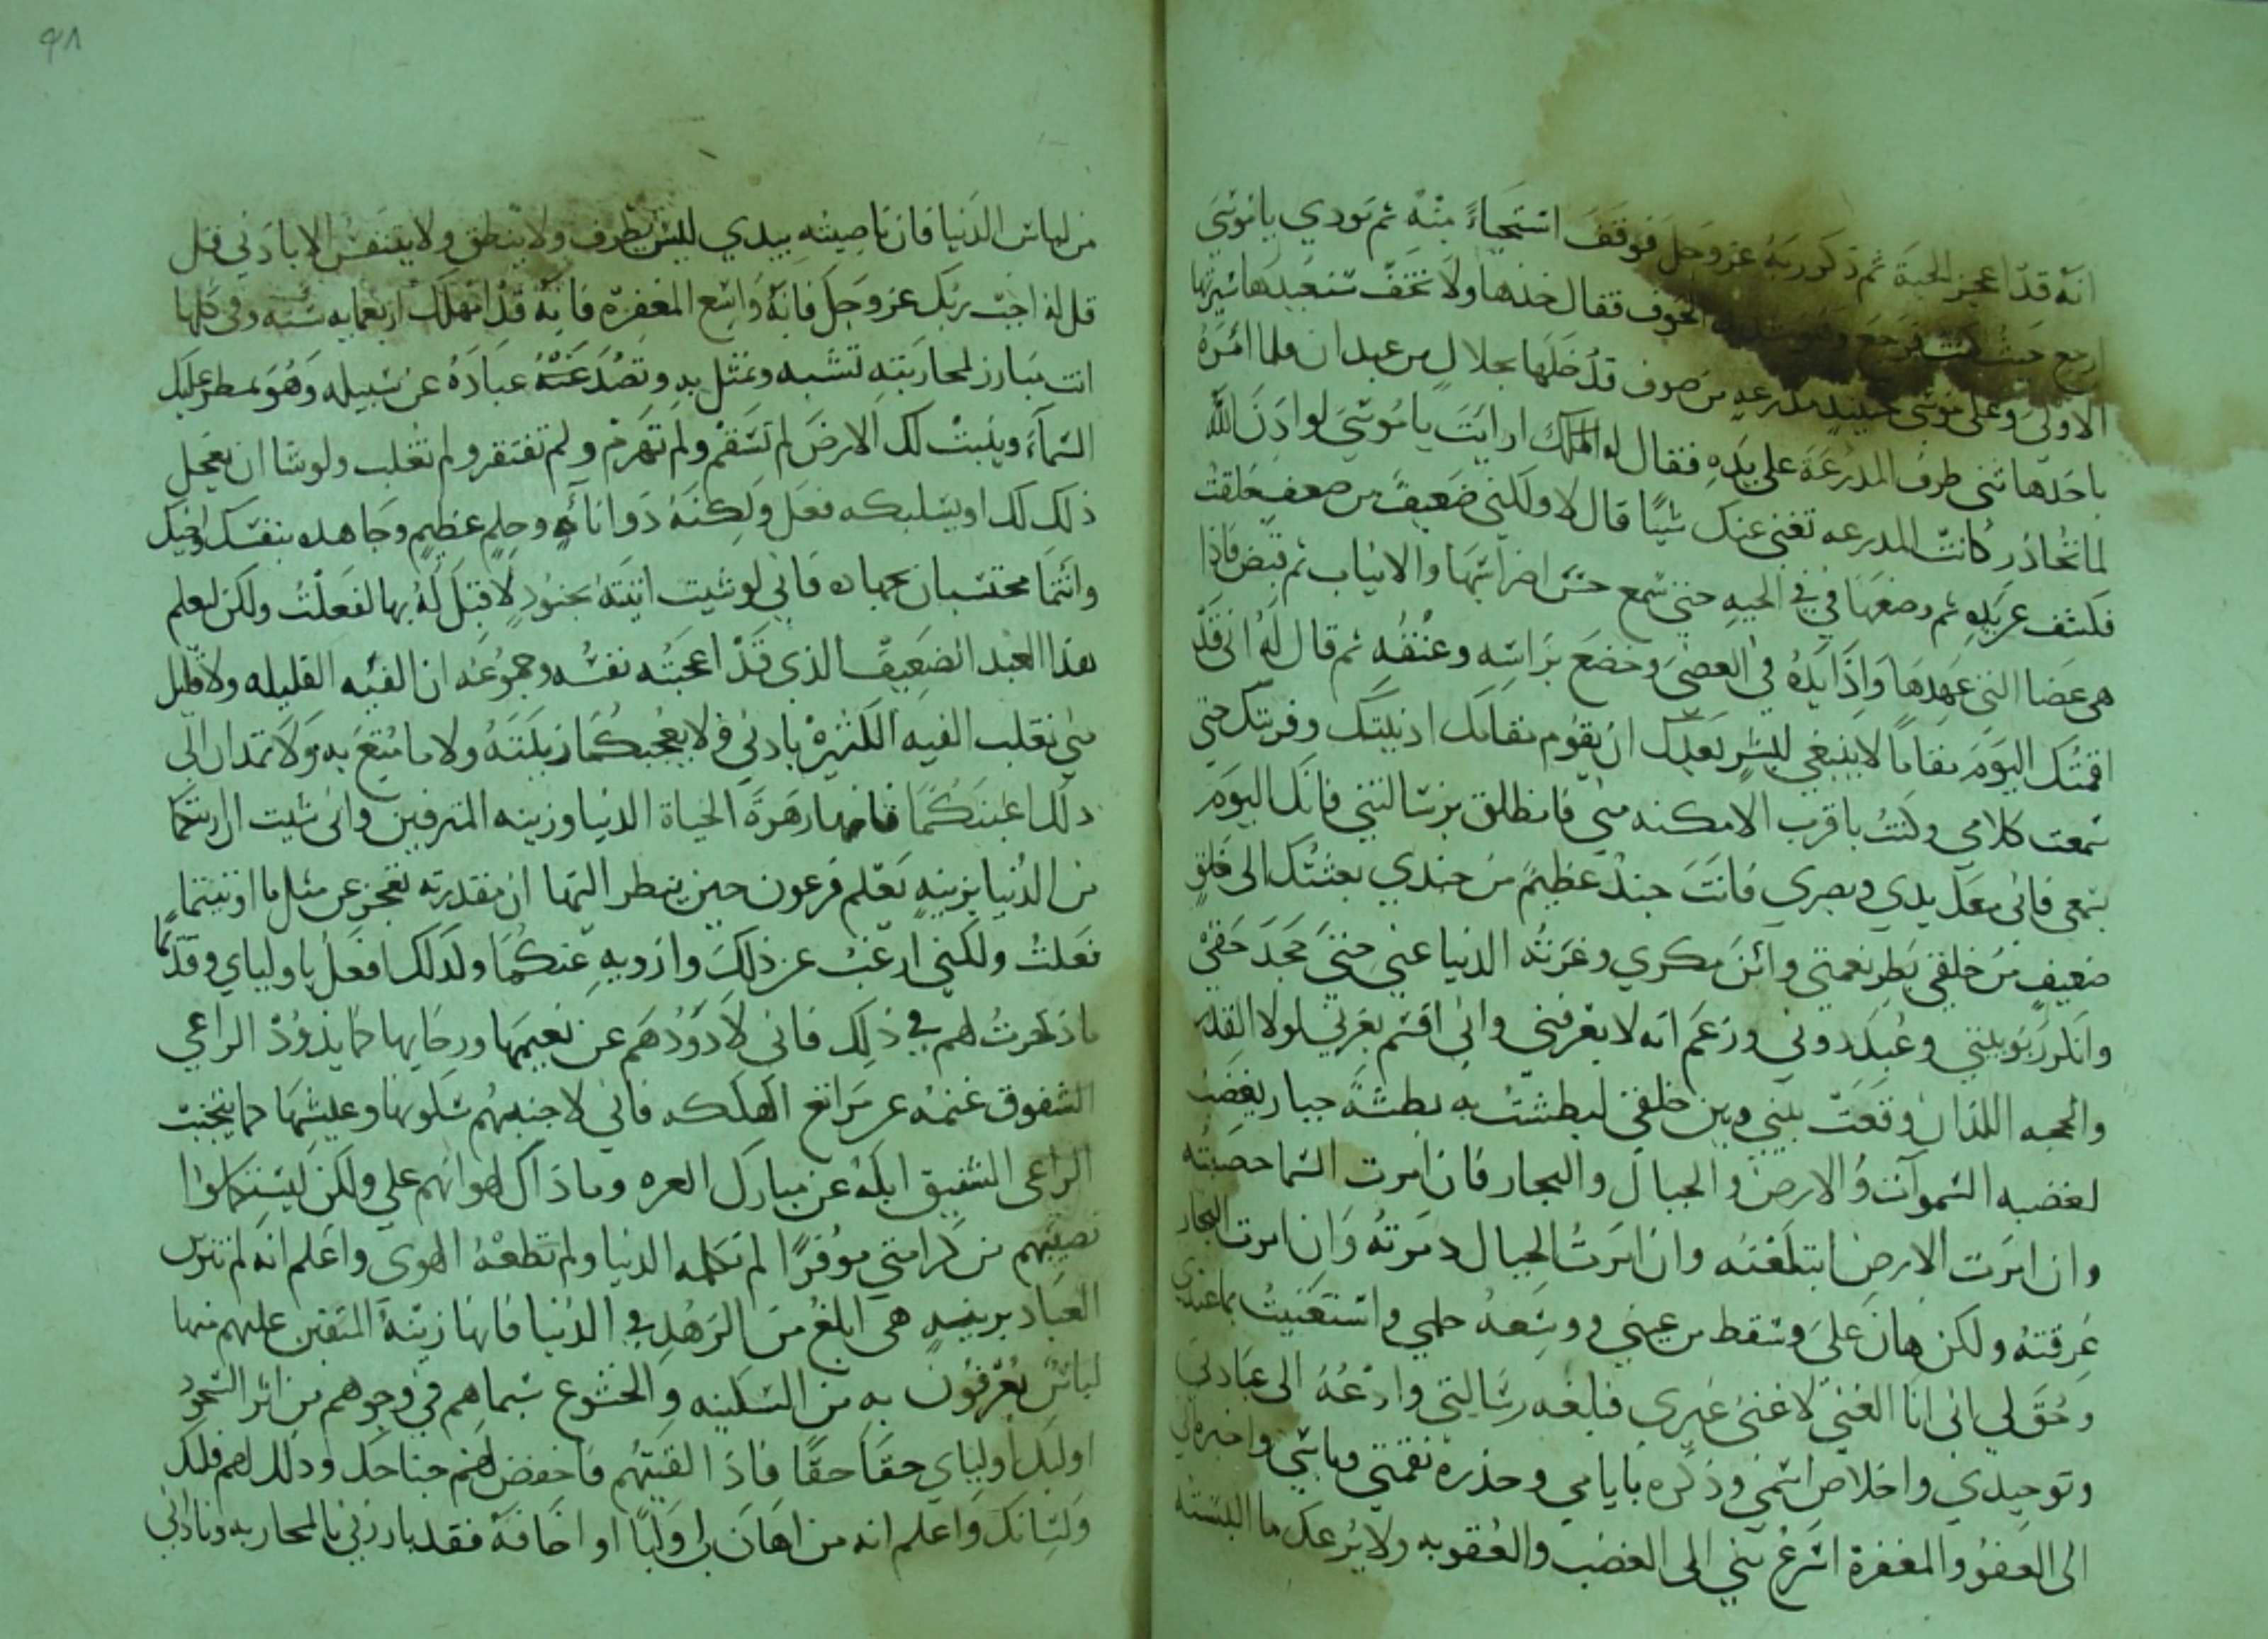 انه قد اعجز الحية ثم ذكر ربه عز وجل فوقف استحياءً منه ثم نودي يا موسى
ارجع حيث كنت فرجع وهو شديد الخوف فقال خذها ولا تخف سنعيدها سيرتها
الاولى وعلى موسى حينيذٍ مدرعه من صوف قد خلها بخلالٍ من عيدان فلما امره
باخذها ثنى طرف المدرعة على يده فقال له الملك ارايت يا موسى لو اذن الله
لما تحاذر كانت المدرعه تغني عنك شيئًا قال لا ولكني ضعيف من ضعف خلقت
فكشف عن يده ثم وضعها في في الحيه حتى سمع حس اضراسها والانياب ثم قبض فاذا
هي عصا التي عهدها واذا يده في العصى وخضع براسه وعنقه ثم قال له انى قد
اقمتك اليوم مقامًا لا ينبغي لبشر بعدك ان يقوم مقامك ادنيتك وقربتك حتى
سمعت كلامي وكنت باقرب الامكنه مني فانطلق برسالتي فانك اليوم
بسمعي فانى معك يدي وبصري فانت جند عظيم من جندي بعثتك الى خلقٍ
ضعيفٍ من خلقي بطر نعمتي وامن مكري وغرته الدنيا عني حتى جحد حقي
وانكر ربوبيتي وعبد دوني وزعم انه لا يعرفني واني اقسم بعزتي لولا القدر
والحجه اللذان وقعت بيني وبين خلقي لبطشت به بطشة جبار يغضب
لغضبه السموات والارض والجبال والبحار فان امرت السما حصبته
وان امرت الارض ابتلعته وان امرت الجبال دمرته وان امرت البحار
غرقته ولكن هان على وسقط من عيني ووسعه حلمي واستغنيت بما عندي
وحق لي اني انا الغني لا غنى غيري فبلغه رسالتي وادعه الى عبادتي
وتوحيدي واخلاص اسمي وذكره بايامي وحذره نقمتي وباسي واخبره اني
الى العفو والمغفرة اسرع مني الى الغضب والعقوبه ولا يرعك ما البسته
من لباس الدنيا فان ناصيته بيدي ليس يطرف ولا ينطق ولا يتنفس الا باذني قل
قل له اجب ربك عز وجل فانه واسع المغفرة فانه قد امهلك اربعمايه سنه وفي كلها
انت تبارز لمحاربته تشبه وتمثل به وتصد عنه عباده عن سبيله وهو يمطر عليك
السماء وينبت لك الارض لم تسقم ولم تهرم ولم تفتقر ولم تغلب ولو شا ان يعجل
ذلك لك او يسلبكه فعل ولكنه ذو اناةٍ وحلمٍ عظيمٍ وجاهده بنفسك واخيك
وانتما محتسبان بجهاده فاني لو شيت اتيته بجنودٍ لا قبل له بها لفعلت ولكن ليعلم
هذا العبد الضعيف الذي قد اعجبته نفسه وجموعه ان الفئه القليله ولا قليل
مني تغلب الفيه الكثيرة باذني فلا يعجبكما زينته ولا ما متع به ولا تمدان الى
ذلك اعينكما فانها زهرة الحياة الدنيا وزينه المترفين واني شيت ان ازينكما
من الدنيا بزينهٍ يعلم فرعون حين ينظر اليها ان مقدرته تعجز عن مثل ما اوتيتما
فعلت ولكني ارغب عن ذلك وازويه عنكما ولذلك افعل باوليائي وقدمًا
ما ذخرت لهم في ذلك فاني لاذودهم عن نعيمها ورخايها كما يذود الراعي
الشفوق غنمه عن مراتع الهلكه فاني لاجنبهم سلوتها وعيشها كما يجنب
الراعي الشفيق ابله عن مبارك العره وما ذاك لهوانهم علي ولكن ليستكملوا
نصيبهم من كرامتي موفرًا لم تكلمه الدنيا ولم تطعه الهوى واعلم انه لم تتزين
العباد بزينهٍ هي ابلغ من الزهد في الدنيا فانها زينة المتقين عليهم منها
لباس يعرفون به من السكينه والخشوع سيماهم في وجوههم من اثر السجود
اوليك اوليائي حقًا حقًا فاذا القيتهم فاخفض لهم جناحك وذلل لهم قلبك
ولسانك واعلم انه من اهان لي وليًا او اخافه فقد بارزني بالمحاربه وناداني